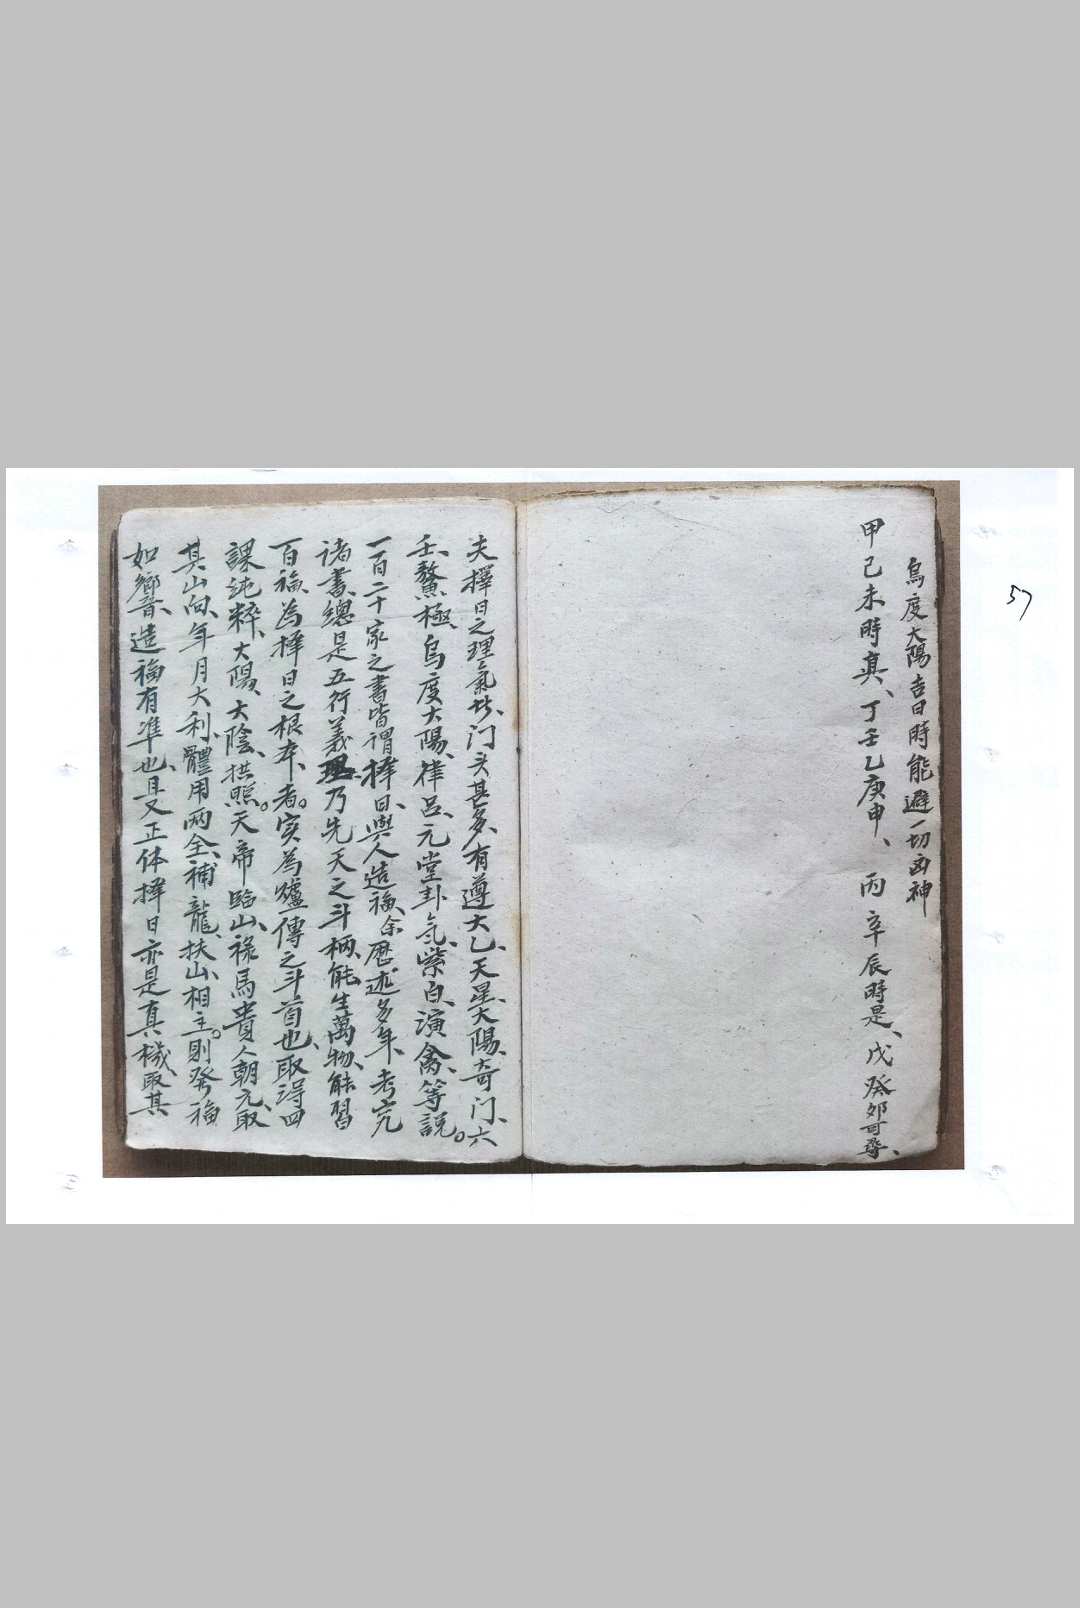 57
烏度大陽吉日時能避一切凶神
甲己未時真、丁壬乙庚申、丙辛辰時是、戊癸卯可尋、
夫擇日之理氣、门头甚多、有遵大乙、天星、大陽、奇门、六
壬、鰲極、烏度大陽、律呂元堂卦氣、紫白、演禽、等説。
一百二十家之書皆谓擇日、與人造福、余歷述多年、考究
诸書、總是五行義理乃先天之斗柄、能生萬物、能習
百福、為擇日之根夲、者。实為爐傳之斗首也、取淂四
課純粹、大陽、大陰、拱照。天帝臨山、禄馬貴人朝元、取
其山向、年月大利、體用两全、補龍、扶山、相主。則發福
如響、造福有準也、且又正体擇日亦是真機、取其